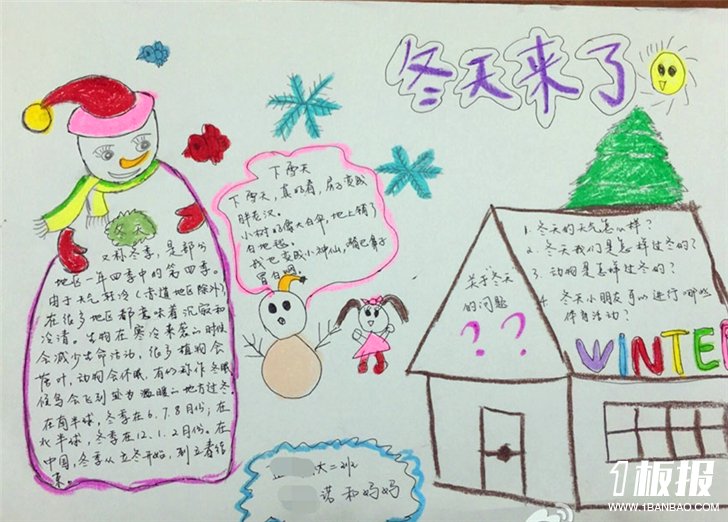 冬天来了
冬天
又称冬季,是部分
地区一年四季中的第四季。
由于天气转冷(赤道地区除外)
在很多地区都意味着沉寂和
冷清。生物在寒冷来袭的时候
会减少生命活动,很多植物会
落叶,动物会休眠,有的称作冬眠
候鸟会飞到较为温暖的地方过冬.
在南半球,冬季在6.7.8月份;在
北半球,冬季在12.1.2月份。在
中国,冬季从立冬开始,到立春结
束。
下雪天
下雪天,真好看,房子变成
胖老汉。
小树好像大白伞,地上铺了
白地毯。
我也变成小神仙,嘴巴鼻子
冒白烟。
大二班
诺和妈妈
关于冬天
的问题
? ?
1. 冬天的天气怎么样?
2. 冬天我们是怎样过冬的?
3. 动物是怎样过冬的?
4. 冬天小朋友可以进行哪些
体育活动?
WINTER
1板报
WWW.1BANBAO.COM